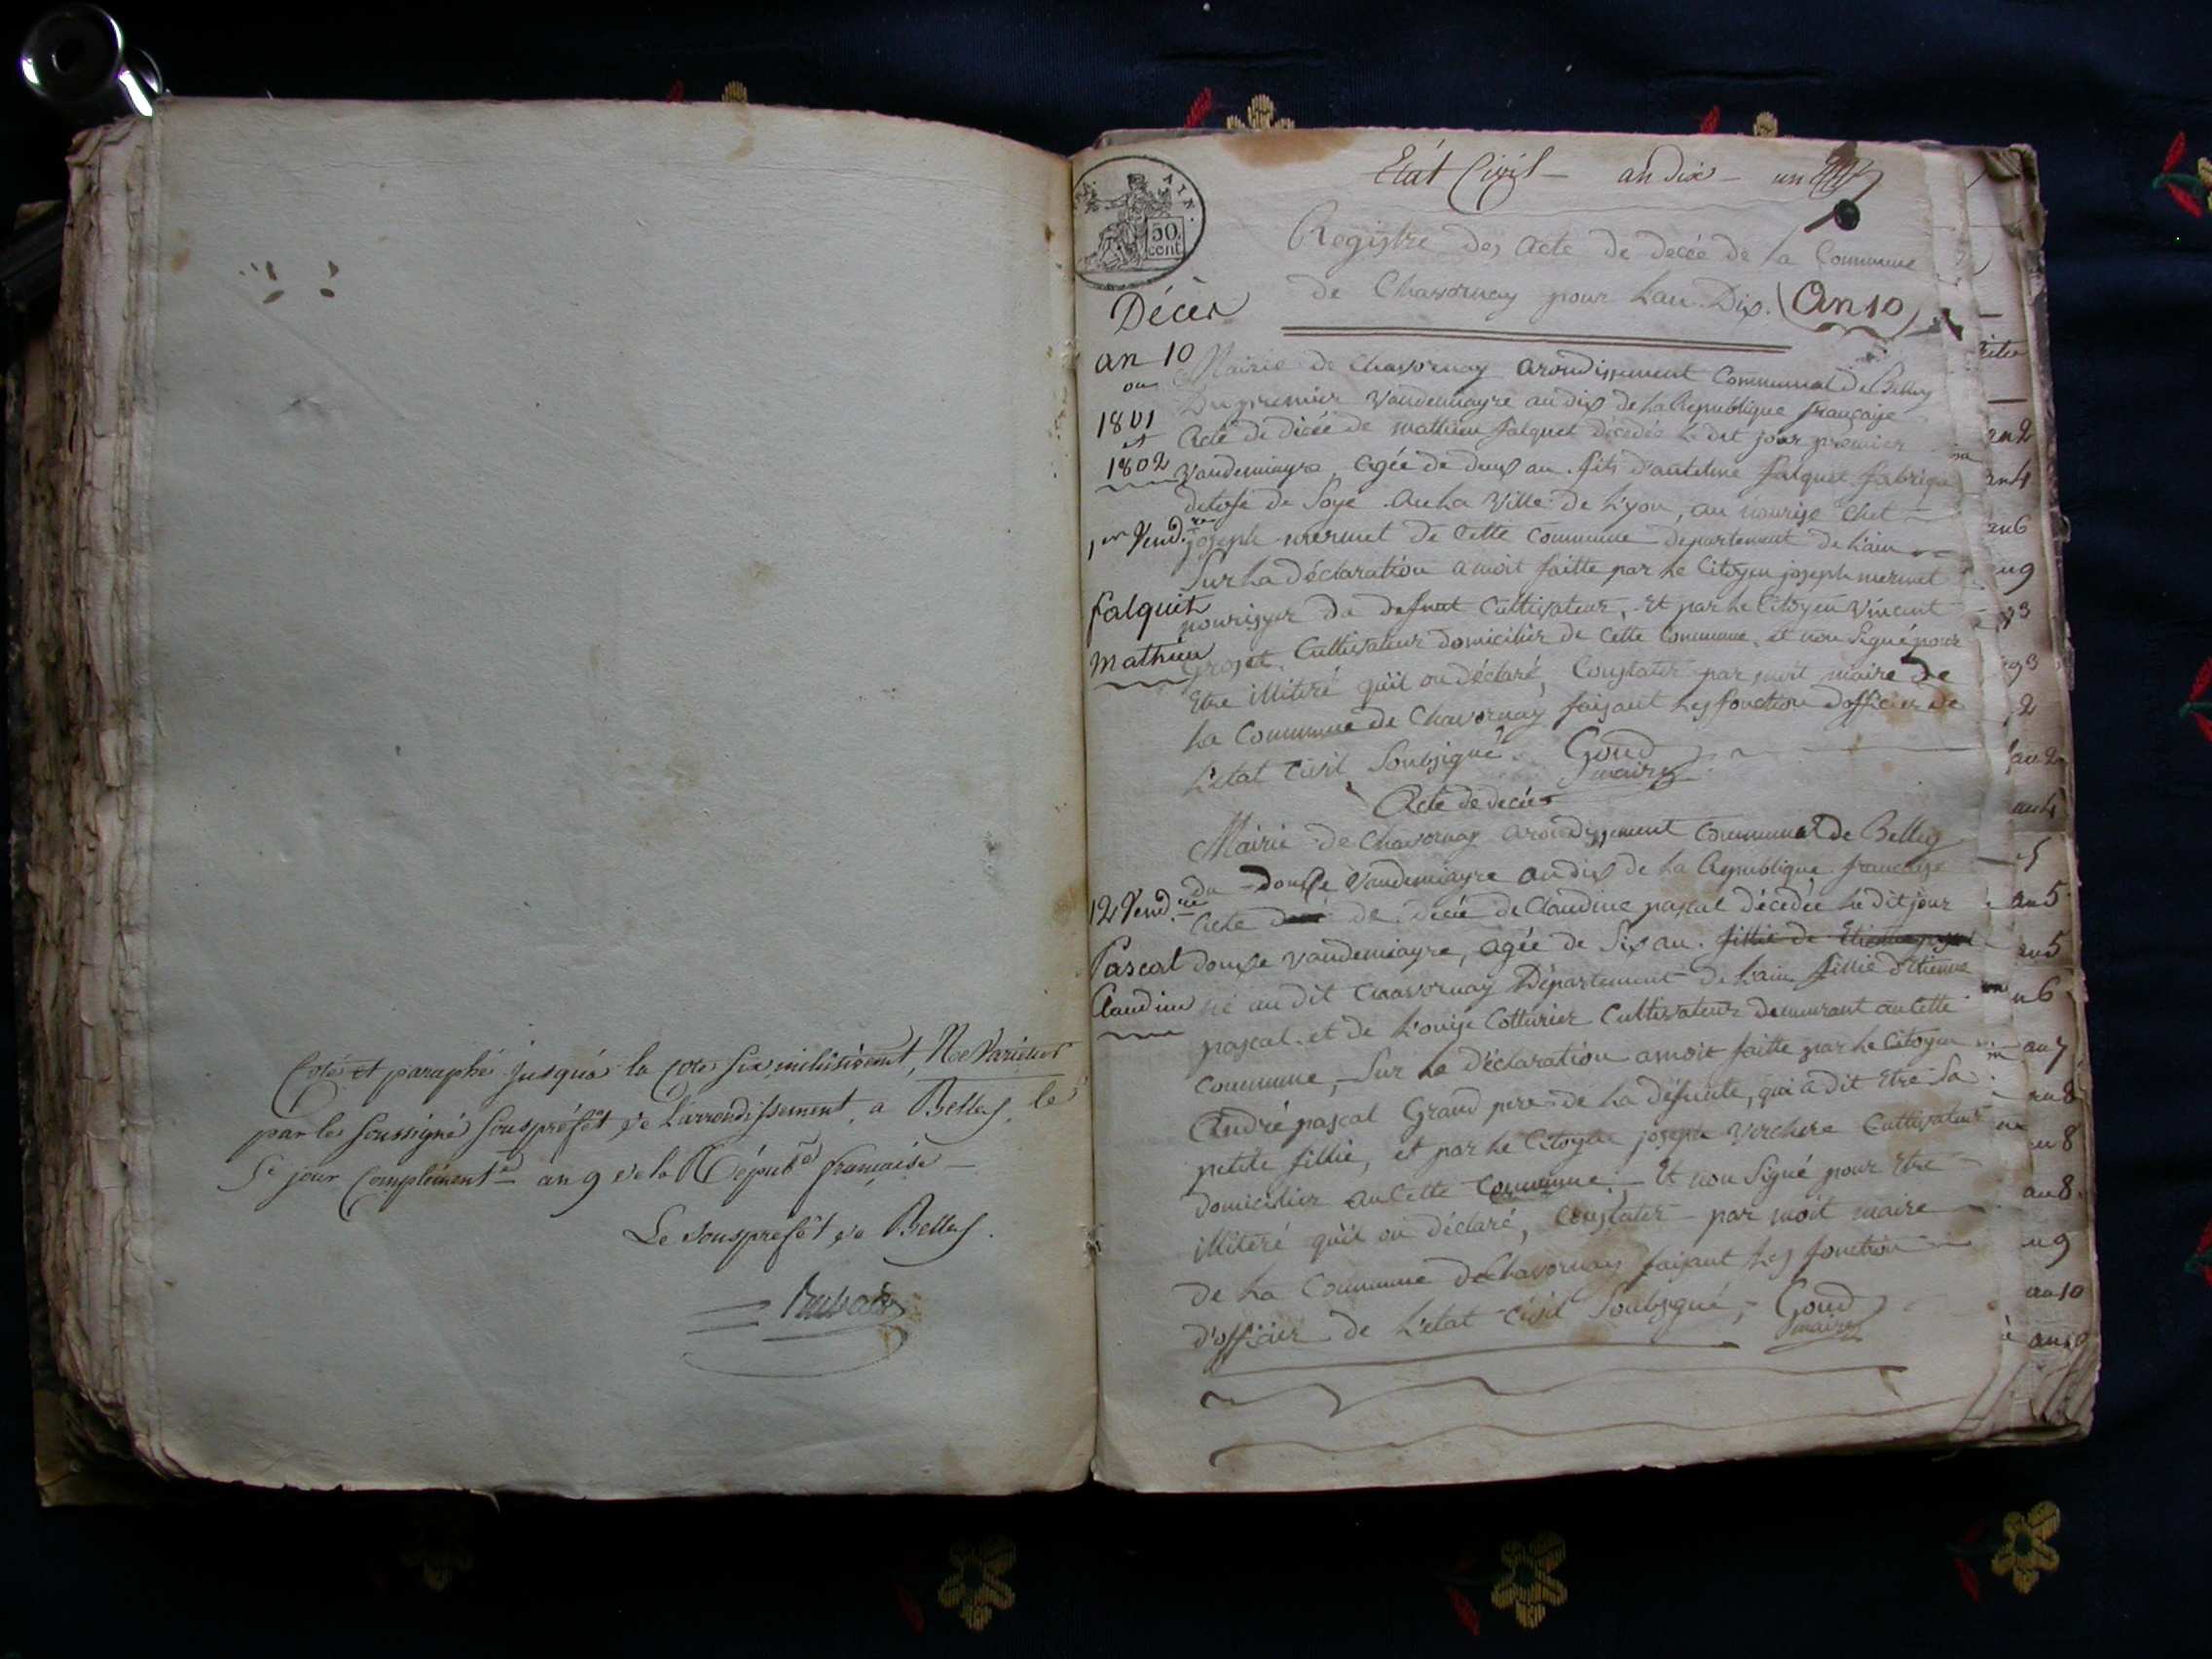 Coté et paraphé jusqu'à la cote six inclusivement, Ne Varietur
par les soussigné souspréfêt de L'arrondissement, a Belley, le
5e jour Complément. an 9 de la Répub. francaise
Le souspréfêt de Belley.
AIN.
50 cent
Etat Civil — an dix — un
Registre des acte de decée de la Commune
de Chavornay pour Lan Dix. (An 10)
Décès
an 10
ou
1801
et
1802
1er Vend.re
falquet
Mathieu
Mairie de Chavornay arondissement Communal de Belley
Du premier Vandemiayre an dix de La Republique françaije
Acte de décée de mathieu falquet décédée Le dit jour premier
Vandemiayre, agée de deux an. fils d'antelme falquet fabriqu
detofe de Soye. an La Ville de Lyon, au nourise Chet
joseph mermet de Cette Commune departement de Lain
Sur La déclaration a moit faitte par Le Citoyen joseph mermet
nourisyer du defunt Cultivateur, Et par Le Citoyen Vincent
Cultivateur domicilier de Cette Commune, et non Signé pour
Etre illiteré qu'il on déclaré, Constater par moit maire de
La Commune de Chavornay faisant Les fonction d'officier de
L'etat Civil Soubsigné. Goud
maire
Acte de decées
Mairie de Chavornay arondissement Communal de Belley
du douze Vandemiayre an dix de La Republique francaise
12 Vend.re
Pascal
Claudine
acte de decée de Claudine pascal décédée Le dit jour
douze Vandemiayre, agée de Six an. fillie de Etienne pascal
né au dit Chavornay Département de Lain fillie d'Etienne
pascal. et de Louise Cotturier Cultivateur demeurant an Cette
Commune, Sur La Déclaration a moit faitte par Le Citoyen
André pascal Grand pere de La défunte, qui à dit Etre Sa
petite fillie, et par Le Citoyen joseph Verchere Cultivateur
domicilier an Cette Commune, Et non Signé pour Etre
illiteré qu'il on déclaré, Constater par moit maire
de La Commune de Chavornay faisant Les fonction
d'officier de L'etat Civil Soubsigné, Goud
maire
an 2
an 4
an 6
an 2
an 4
an 5
an 5
an 7
an 8
an 8
an 8
an 10